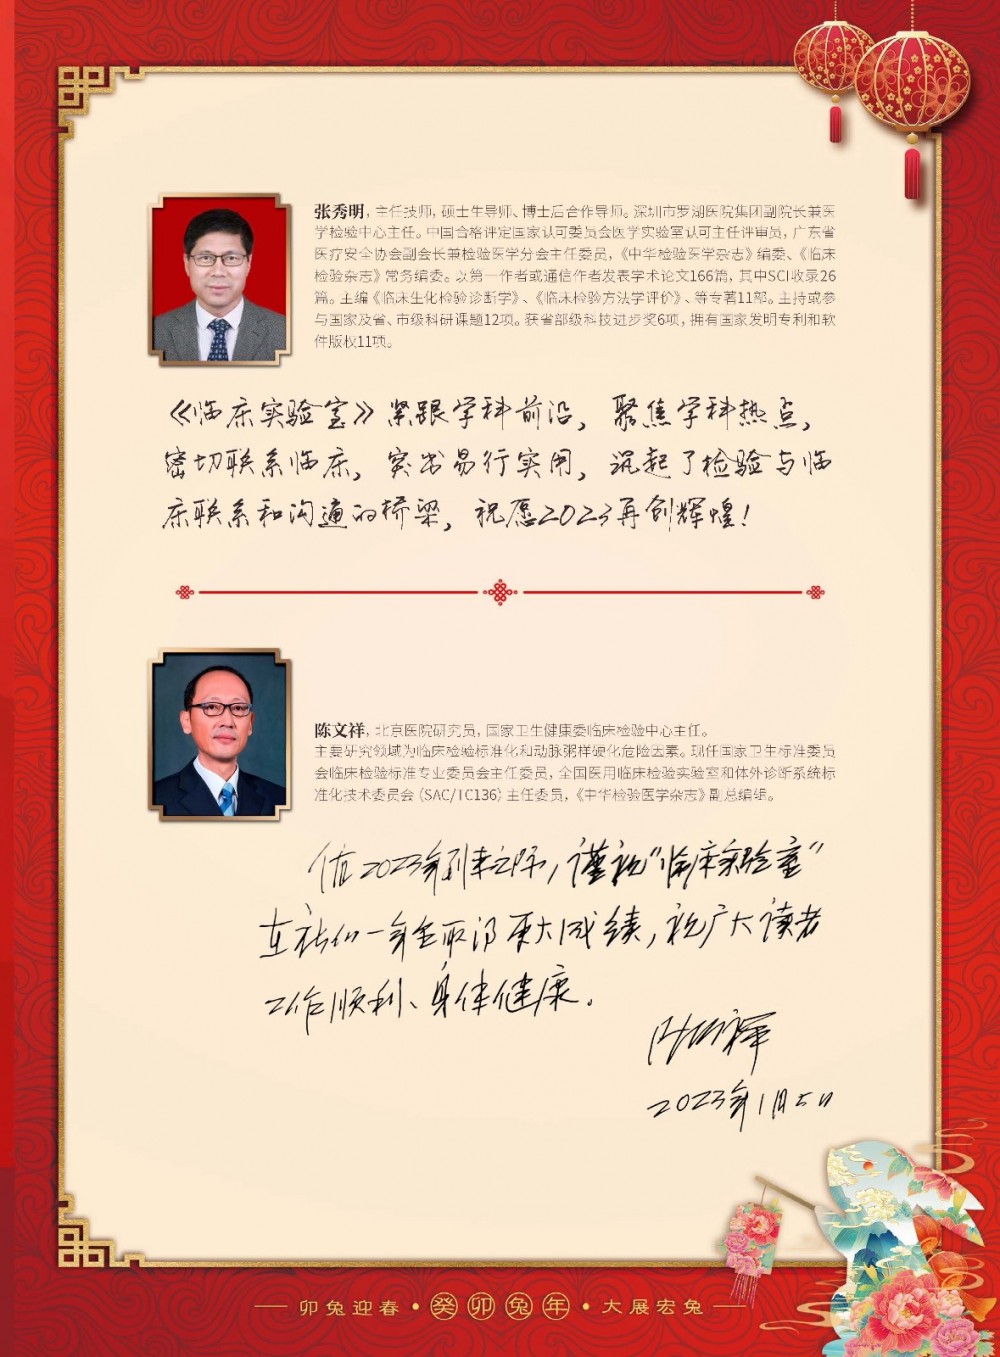 张秀明，主任技师，硕士生导师、博士后合作导师。深圳市罗湖医院集团副院长兼医
学检验中心主任。中国合格评定国家认可委员会医学实验室认可主任评审员，广东省
医疗安全协会副会长兼检验医学分会主任委员，《中华检验医学杂志》编委、《临床
检验杂志》常务编委。以第一作者或通信作者发表学术论文166篇，其中SCI收录26
篇。主编《临床生化检验诊断学》、《临床检验方法学评价》、等专著11部。主持或参
与国家及省、市级科研课题12项。获省部级科技进步奖6项，拥有国家发明专利和软
件版权11项。
《临床实验室》紧跟学科前沿，聚焦学科热点，
密切联系临床，突出易行实用，沉起了检验与临
床联系和沟通的桥梁，祝愿2023再创辉煌！
陈文祥，北京医院研究员，国家卫生健康委临床检验中心主任。
主要研究领域为临床检验标准化和动脉粥样硬化危险因素。现任国家卫生标准委员
会临床检验标准专业委员会主任委员，全国医用临床检验实验室和体外诊断系统标
准化技术委员会（SAC/TC136）主任委员，《中华检验医学杂志》副总编辑。
值2023年到来之际，谨祝“临床实验室”
在新的一年里取得更大成绩，祝广大读者
工作顺利、身体健康。
陈文祥
2023年1月5日
卯兔迎春·癸卯兔年·大展宏兔